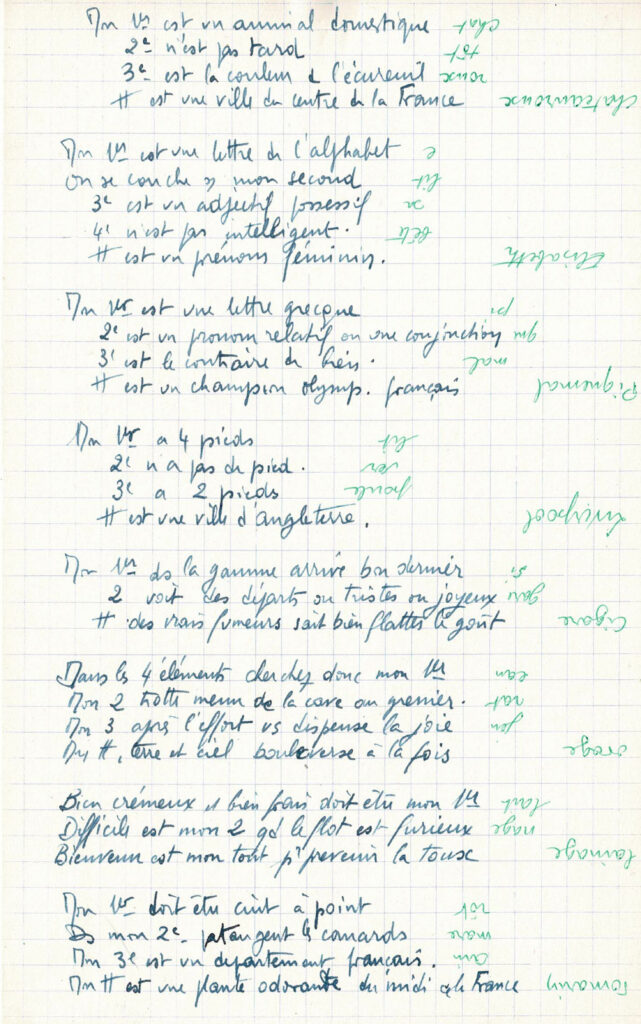 Mon 1er est un animal domestique chat
2e n'est pas tard tôt
3e est la couleur de l'écureuil roux
# est une ville du centre de la France Chateauroux
Mon 1er est une lettre de l'alphabet e
On se couche ds mon second lit
3e est un adjectif possessif sa
4e n'est pas intelligent. bête
# est un prénom féminin. Elisabeth
Mon 1er est une lettre grecque pi
2e est un pronom relatif ou une conjonction que
3e est le contraire de bien. mal
# est un champion olymp. français Piquemal
Mon 1er a 4 pieds lit
2e n'a pas de pied. ver
3e a 2 pieds poule
# est une ville d'angleterre. Liverpool
Mon 1er ds la gamme arrive bon dernier si
2 voit des départs ou tristes ou joyeux gare
# des vrais fumeurs sait bien flatter le goût Cigare
Dans les 4 éléments cherchez donc mon 1er eau
Mon 2 trotte menu de la cave au grenier. rat
Mon 3 après l'effort vs dispense la joie jeu
Mon #, terre et ciel bouleverse à la fois orage
Bien crémeux et bien frais doit être mon 1er lait
Difficile est mon 2 qd le flot est furieux nage
Bienvenu est mon tout pr prevenir la toux lainage
Mon 1er doit être cuit à point rôt
Ds mon 2e patangent les canards mare
Mon 3e est un département français. ain
Mon # est une plante odorante du midi de la France romarin